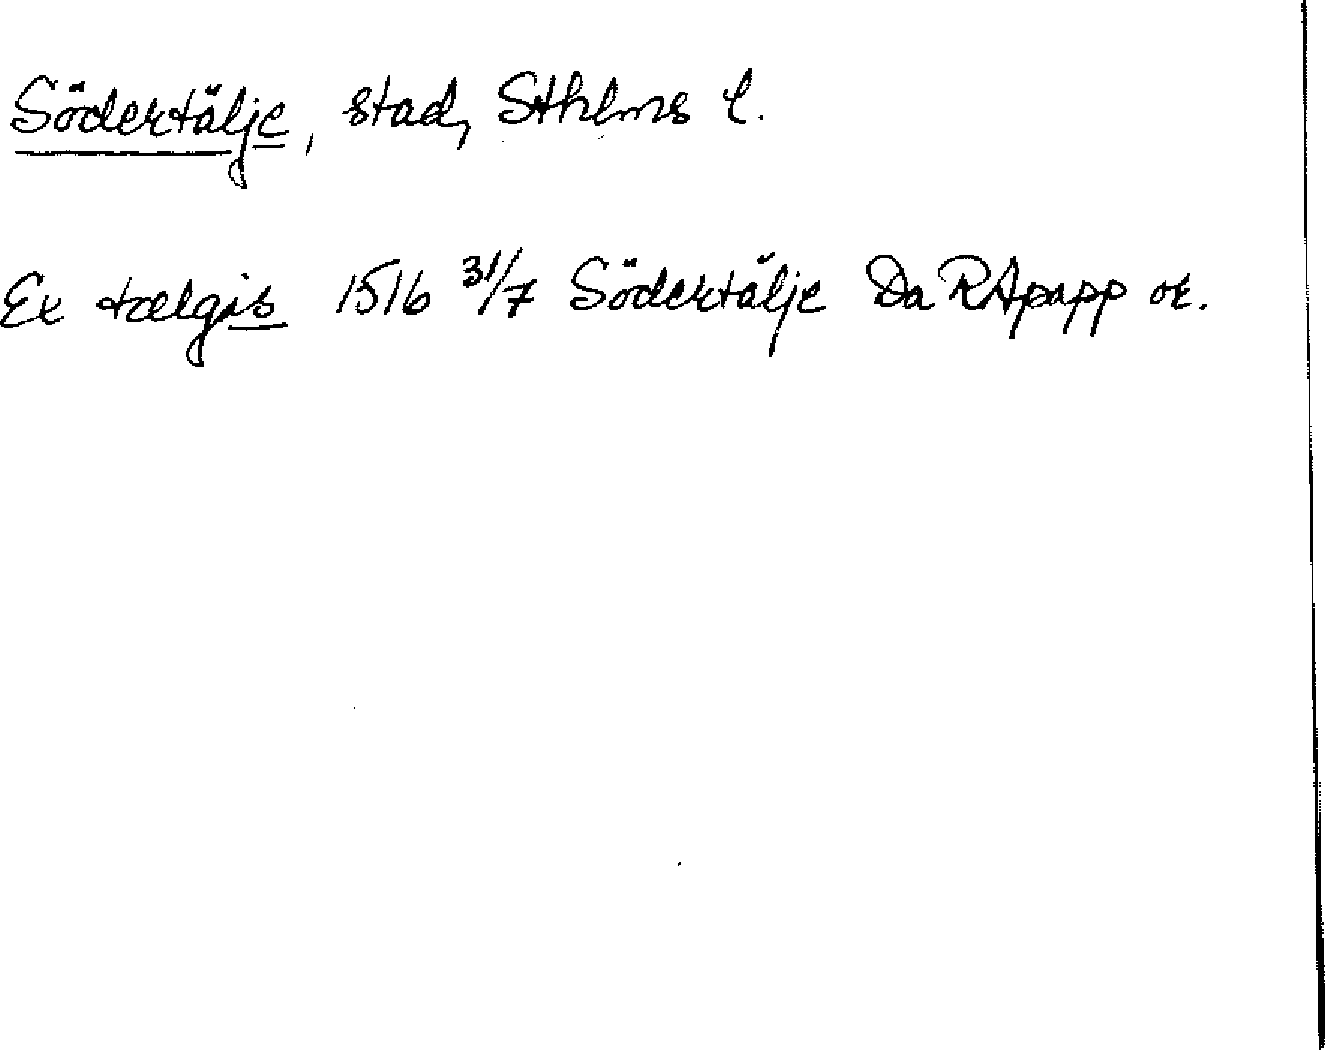 Södertälje, stad, Sthlms l.
Ex tælgis 1516 31/7 Södertälje Da RApapp or.